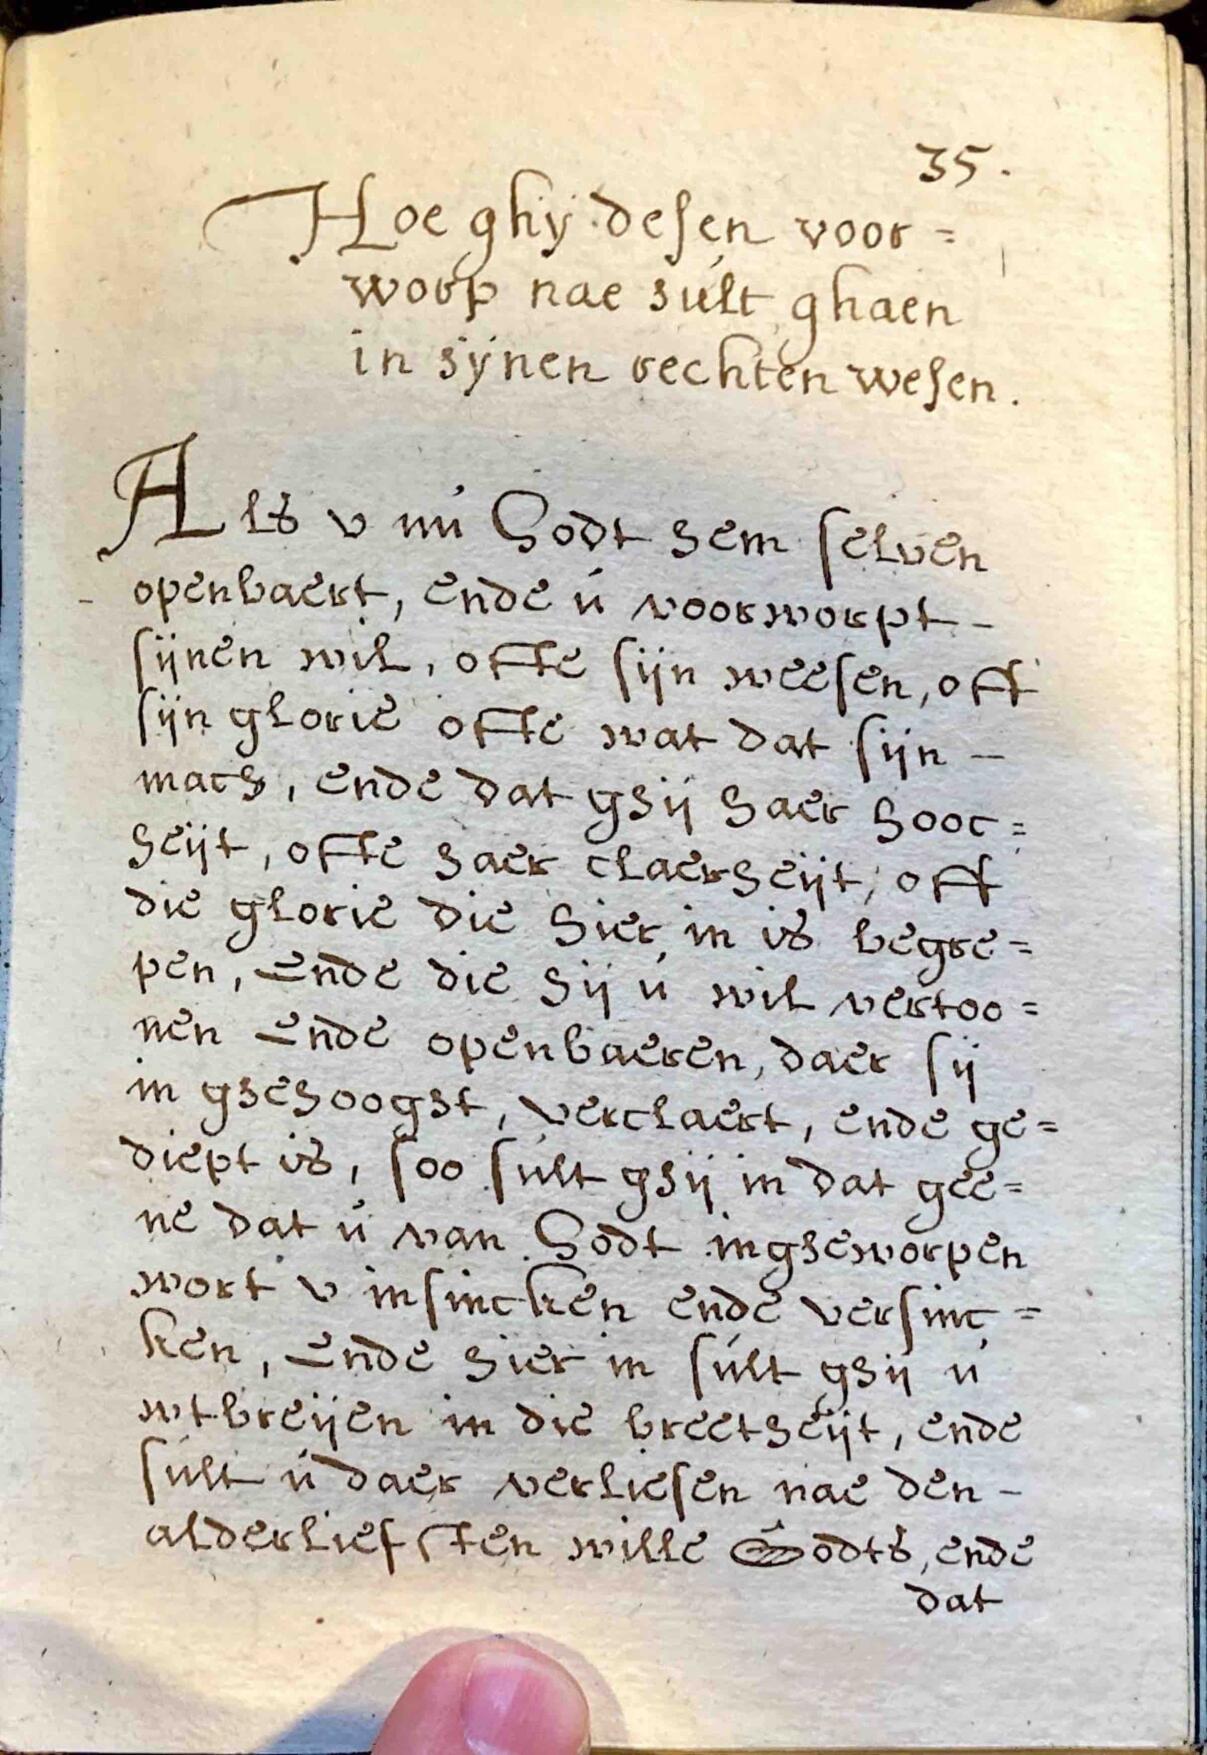 35.
Hoe ghy desen voor=
worp nae sult ghaen
in synen rechten wesen.
Als v nú Godt hem selven
openbaert, ende ú voorworpt -
sijnen wil, ofte sijn weesen, oft
sijn glorie ofte wat dat sijn -
mach, ende dat ghij haer hooc=
heijt, ofte haer claerheijt, oft
die glorie die hier in is begre=
pen, ende die hij ú wil vertoo=
nen ende openbaeren, daer sij
in ghehooght, verclaert, ende ge=
diept is, soo sult ghij in dat gee=
ne dat ú van Godt ingheworpen
wort v insincken ende versinc=
ken, ende hier in súlt ghij ú
wtbreijen in die breetheijt, ende
súlt ú daer verliesen nae den -
alderliefsten wille Godts, ende
dat